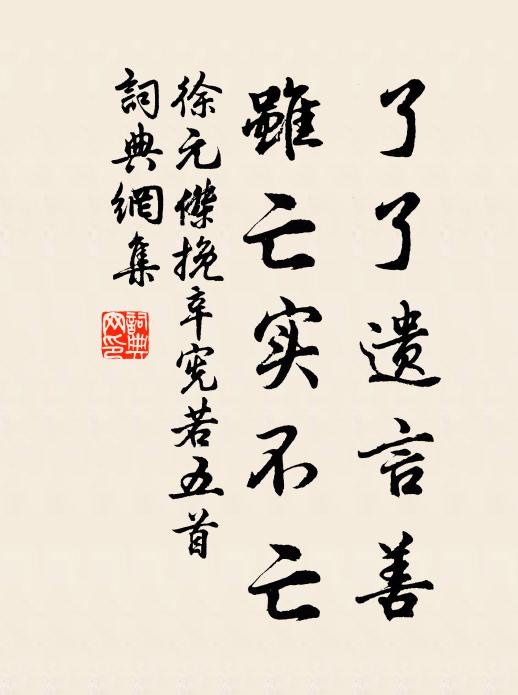 了了遗言善
雖亡实不亡
徐元傑挽辛宪若五首
詞典網集
詞典网印